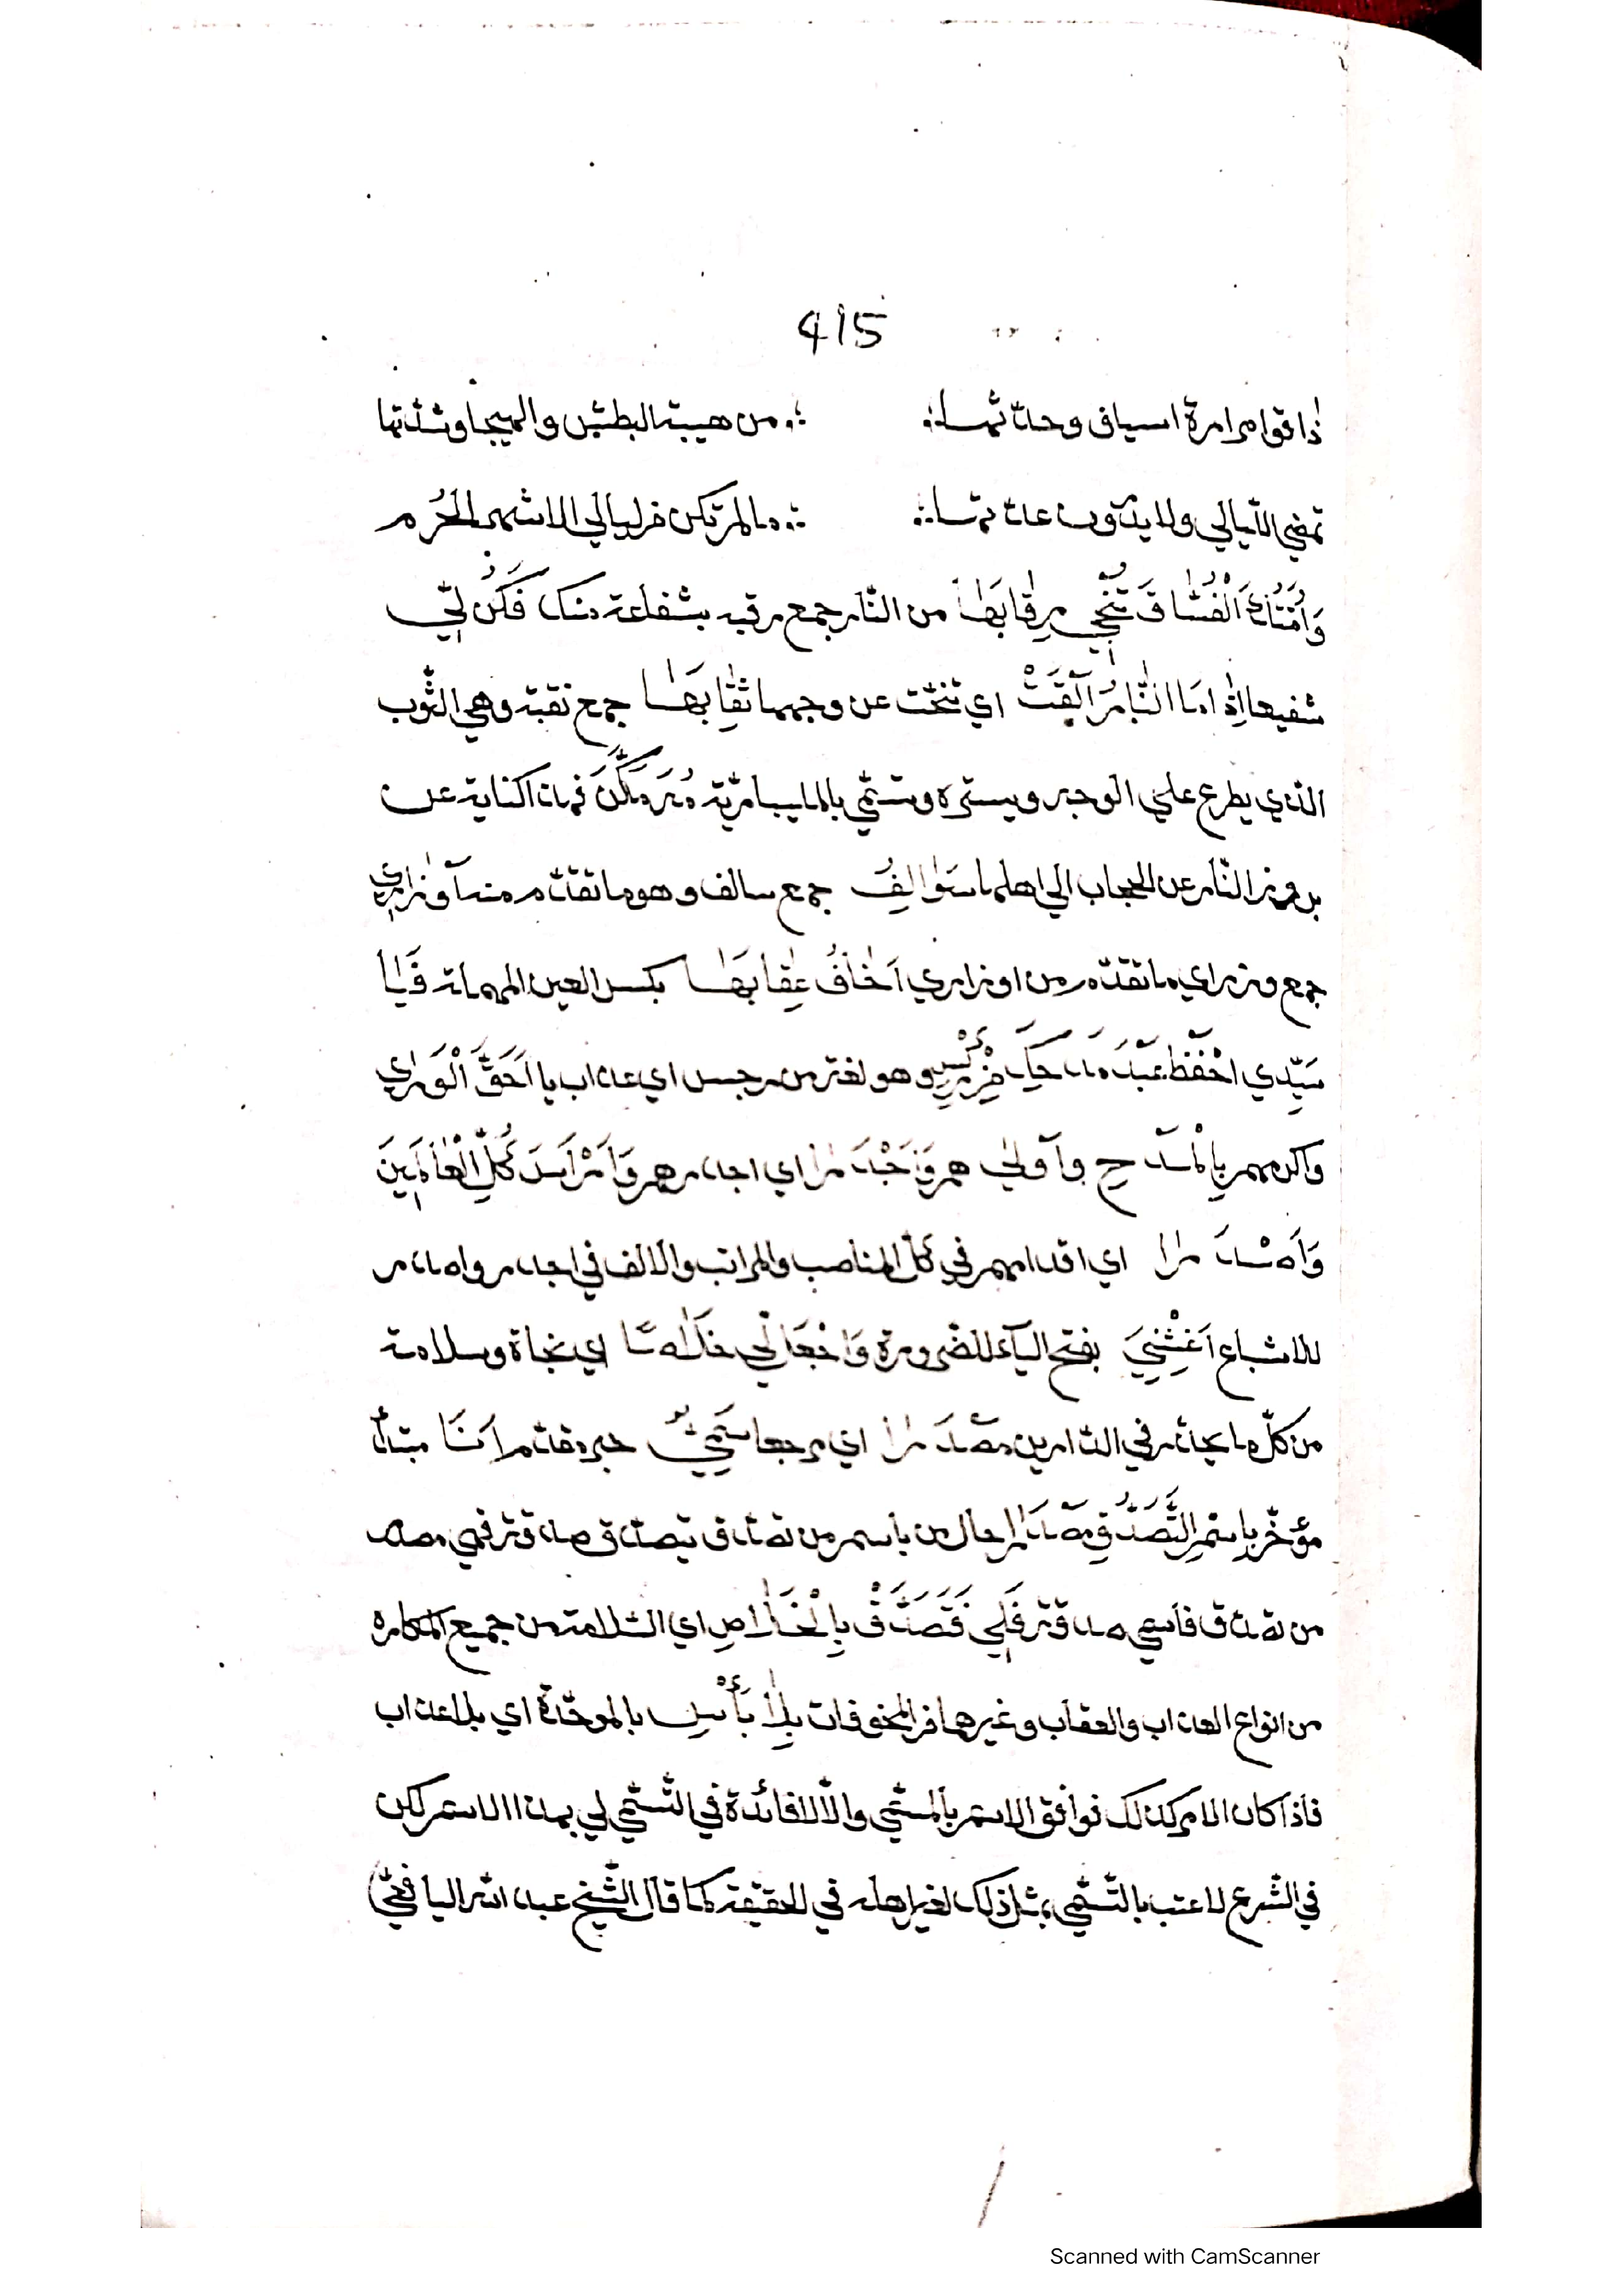 415
ذاقوا مرارة اسياف وحدّتها ؞ من هيبة البطش والهيجا وشدّتها
تمضي اللّيالي ولا يدرون عدّتها ؞ مالم تكن من ليالي الاشهر الحُرم
وَاُمَّتُكَ الْفُسَّاقُ تُنْجِي رِقَابَهَا من النّار جمع رقبة بشفاعة منك فَكُنْ لِي
شفيعها اِذَا مَا النَّارُ اَلْقَتْ اي تنحّت عن وجهها نِقَابَهَا جمع نقبة وهي الثّوب
الذي يطرح علي الوجه ويستره وتسمّي بالمليبارّية فهذا كناية عن
بروز النّار عن الحجاب الي اهلها سَوَالِفُ جمع سالف وهو ما تقدّم منه اَوْزَارِي
جمع وزر اي ما تقدّم من اوزاري اَخَافُ عِقَابَهَا بكسر العين المهملة فَيَا
سَيِّدِي احْفَظْ عَبْدَ مَدْحِكَ مِنْ رِكْسٍ وهو لغة من رجس اي عذاب يا اَحَقَّ الْوَرَي
واكرمهم بِالْمَدْحِ وَاَوْلَي هم وَاَجْدَرَا اي اجدرهم وَاَرْاَسَ كُلِّ الْعَالَمِينَ
وَاَصْدَرَا اي اقدمهم في كلّ المناصب والمراتب والالف في اجدر واصدر
للاشباع اَغِثْنِيَ بفتح الياء للضّرورة وَاجْعَلْ لِي خَلَاصًا اي نجاة وسلامة
من كلّ ما يحذر في الدّارين مَصْدَرَا اي مرجعا سَمِيٌّ خبر مقدّم اَنَا مبتدأ
مؤخّر بِاسْمِ التَّصَدُّقِ مَصْدَرَا حال من باسم من تصدّق يتصدّق صدقة فهي مصدر
من تصدّق فاسمي صدقة فَلِي فَتَصَدَّقْ بِالْخَلَاصِ اي السّلامة من جميع المكاره
من انواع العذاب والعقاب وغيرها من المخوفات بِلَا بَأْسٍ بالموحّدة اي بلا عذاب
فاذا كان الامر كذلك فوافق الاسم بالمسمّي والّا لا فائدة في التّسمّي لي بهذا الاسم لكن
في الشّرع لا عتب بالتّسمّي بمثل ذلك لغير اهله في الحقيقة كما قال الشّيخ عبد الله اليافعيّ
Scanned with CamScanner